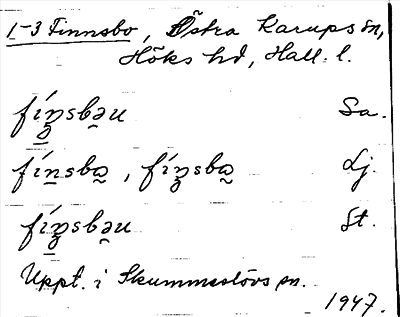 1-3 Finnsbo, Östra Karups sn,
Höks hd, Hall. l.
fíŋ̲sbə̰u Sa.
fín̲sba̰, fíŋsba̰ Lj.
fíŋ̲sbə̰u St.
Uppt. i Skummeslövs sn.
1947.